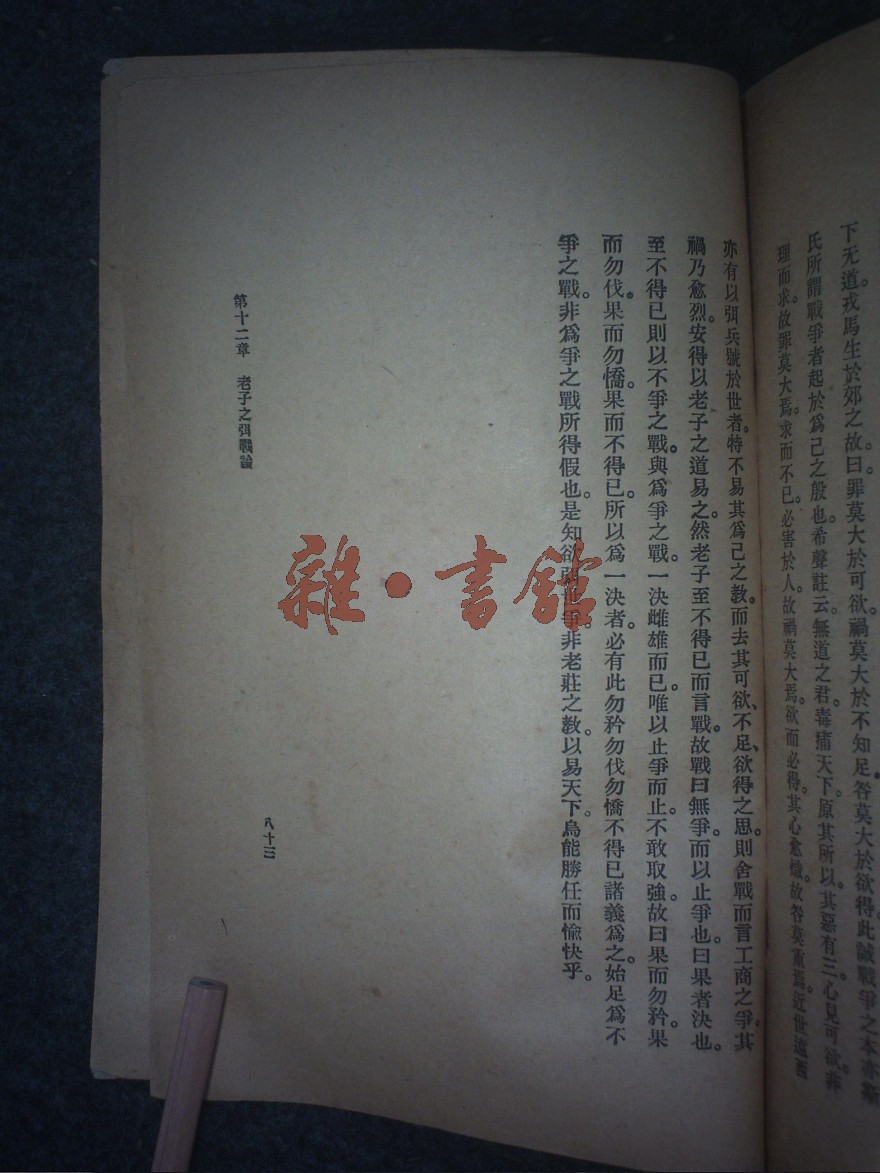 下无道。戎馬生於郊之故曰罪莫大於可欲。禍莫大於不知足。咎莫大於欲得。此誠戰爭之本。亦
氏所謂戰爭者起於爲己之殷也。希聲註云。無道之君。毒痡天下。原其所以。其惡有三。心見可欲。非
理而求。故罪莫大焉。求而不已。必害於人。故禍莫大焉。欲而必得。其心愈熾。故咎莫重焉。近世遠西
亦有以弭兵號於世者。特不易其爲己之教。而去其可欲、不足、欲得之思。則舍戰而言工商之爭。其
禍乃愈烈。安得以老子之道易之。然老子至不得已而言戰。故戰曰無爭。而以止爭也。曰果者決也。
至不得已則以不爭之戰。與爲爭之戰。一決雌雄而已。唯以止爭而止。不敢取強。故曰果而勿矜。果
而勿伐。果而勿憍。果而不得已。所以爲一決者。必有此勿矜勿伐勿憍不得已諸義爲之。始足爲不
爭之戰。非爲爭之戰所得假也。是知欲弭世爭。非老莊之教。以易天下。烏能勝任而愉快乎。
第十二章　老子之弭戰論
八十三
雜·書館